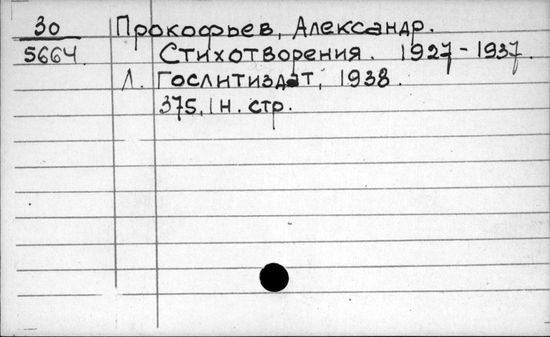 30 Прокофьев, Александр.
5664 Стихотворения. 1927-1937.
Л. Гослитиздат, 1938.
375, 1 н. стр.